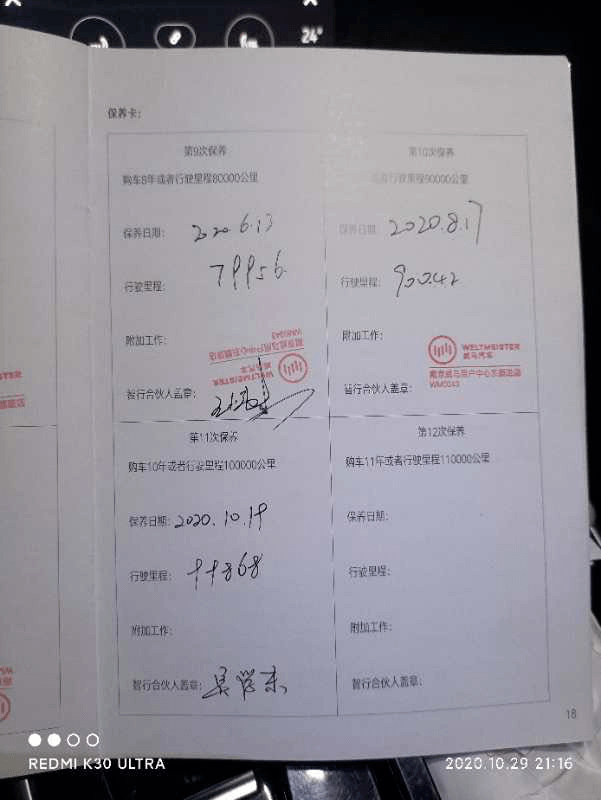 24°
保养卡：
第9次保养
购车8年或者行驶里程80000公里
保养日期： 2020.6.13
行驶里程： 79956
附加工作：
WELTMEISTER
威马汽车
WM0043
智行合伙人盖章：
第10次保养
或者行驶里程90000公里
保养日期： 2020.8.17
行驶里程： 90042
附加工作：
WELTMEISTER
威马汽车
南京威马用户中心东麒路店
WM0043
智行合伙人盖章：
第11次保养
购车10年或者行驶里程100000公里
保养日期： 2020.10.19
行驶里程： 99868
附加工作：
智行合伙人盖章：
第12次保养
购车11年或者行驶里程110000公里
保养日期：
行驶里程：
附加工作：
智行合伙人盖章：
18
REDMI K30 ULTRA
2020.10.29 21:16